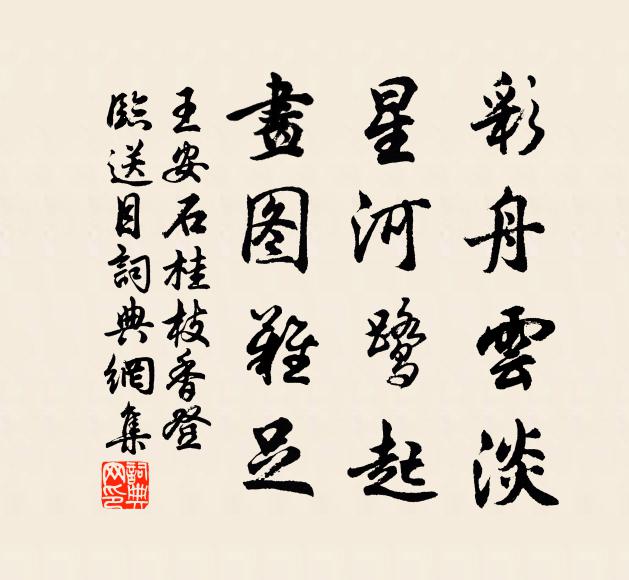 彩舟雲淡
星河鷺起
畫圖難足
王安石桂枝香登
臨送目詞典網集
詞典网印